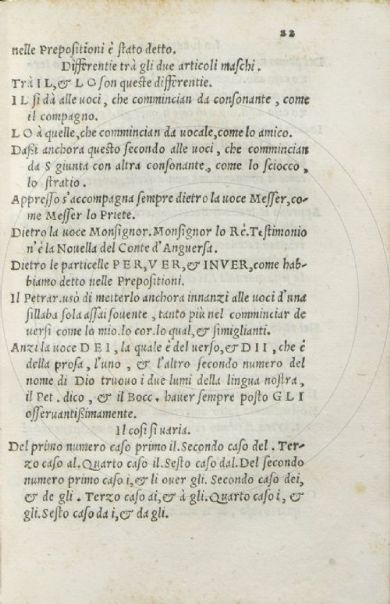 22
nelle Prepositioni è ſtato detto.
Differentie trà gli due articoli maſchi.
Trà IL, & LO ſon queſte differentie.
IL ſi dà alle uoci, che commincian da conſonante, come
il compagno.
LO à quelle, che commincian da uocale, come lo amico.
Daßi anchora queſto ſecondo alle uoci, che commincian
da S giunta con altra conſonante, come lo ſciocco,
lo ſtratio.
Appreſſo s'accompagna ſempre dietro la uoce Meſſer, co-
me Meſſer lo Priete.
Dietro la uoce Monſignor. Monſignor lo Rè. Teſtimonio
n'è la Nouella del Conte d'Anguerſa.
Dietro le particelle PER, VER, & INVER, come hab-
biamo detto nelle Prepoſitioni.
Il Petrar. usò di metterlo anchora innanzi alle uoci d'una
ſillaba ſola aſſai ſouente, tanto più nel cominciar de
uerſi come lo mio. lo cor. lo qual, & ſimiglianti.
Anzi la uoce DEI, la quale è del uerſo, & DII, che è
della proſa, l'uno, & l'altro ſecondo numero del
nome di Dio truouo i due lumi della lingua noſtra,
il Pet. dico, & il Bocc. hauer ſempre poſto GLI
oſſeruantißimamente.
Il coſi ſi uaria.
Del primo numero caſo primo il. Secondo caſo del. Ter-
zo caſo al. Quarto caſo il. Seſto caſo dal. Del ſecondo
numero primo caſo i, & li ouer gli. Secondo caſo dei,
& de gli. Terzo caſo ai, & à gli. Quarto caſo i, &
gli. Seſto caſo da i, & da gli.